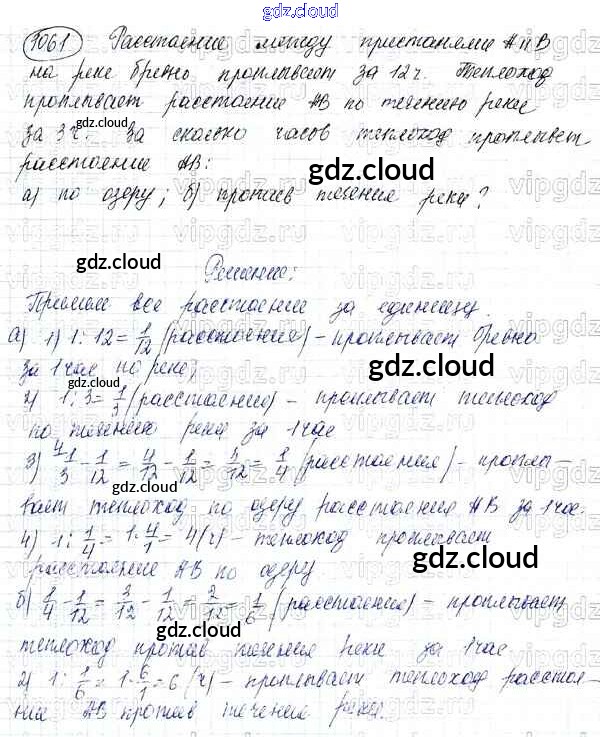 gdz.cloud
1061 Расстояние между пристанями А и В
на реке бревно проплывает за 12 ч. Теплоход
проплывает расстояние АВ по течению реки
за 3 ч. За сколько часов теплоход проплывет
расстояние АВ:
а) по озеру; б) против течения реки?
Решение:
Примем все расстояние за единицу.
а) 1) 1 : 12 = 1/12 (расстояние) – проплывает бревно
за 1 час по реке;
2) 1 : 3 = 1/3 (расстояния) – проплывает теплоход
по течению реки за 1 час
3) 4 1/3 - 1/12 = 4/12 - 1/12 = 3/12 = 1/4 (расстояния) – проплы-
вает теплоход по озеру расстояния АВ за 1 час.
4) 1 : 1/4 = 1 · 4/1 = 4 (ч) – теплоход проплывает
расстояние АВ по озеру
б) 1/4 - 1/12 = 3/12 - 1/12 = 2/12 = 1/6 (расстояния) – проплывает
теплоход против течения реки за 1 час
2) 1 : 1/6 = 1 · 6/1 = 6 (ч) – проплывает теплоход расстоя-
ние АВ против течения реки.
gdz.cloud
gdz.cloud
gdz.cloud
gdz.cloud
gdz.cloud
gdz.cloud
gdz.cloud
gdz.cloud
gdz.cloud
vipgdz.ru